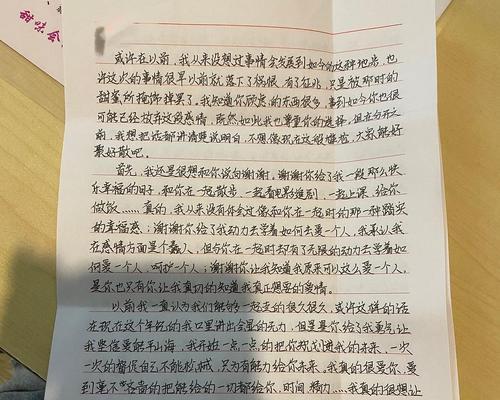 甜味会
或许在以前，我从来没想过事情会发展到如今的这种地步，也
许这次的事情很早以前就落下了祸根，有了征兆，只是被那时的
甜蜜所掩饰掉罢了，我知道你顾虑的东西很多，事到如今你也很
可能已经放弃这段感情，既然如此我也尊重你的选择，但在分开之
前，我想把话都讲清楚说明白，不想像现在这般尴尬，大家能好
聚好散吧。
首先，我还是很想和你说句谢谢。谢谢你给了我一段那么快
乐幸福的日子，和你在一起散步，一起看电影追剧，一起上课，给你
做饭……真的，我从来没有体会过像和你在一起时的那一种踏实
的幸福感；谢谢你给了我动力去学着如何去爱一个人，我承认我
在感情方面是个蠢人，但与你在一起时却有了无限的动力去学着如
何爱一个人，呵护一个人；谢谢你让我知道我原来可以这么爱一个人，
是你也只有你让我真切的知道我真正想要的爱情。
以前我一直认为我们能够一起走的很久很久，或许这样的话
在现在这个年纪的我口里讲出会显的无力，但是是你给了我勇气让
我坚信爱能平山海，我开始一点一点的把你规划进我的未来，一次
一次的督促自己不能放城，只为有能力给你未来。我真的很爱你，爱
到毫不吝啬的把能给的一切都给你，时间，精力……我真的很想让